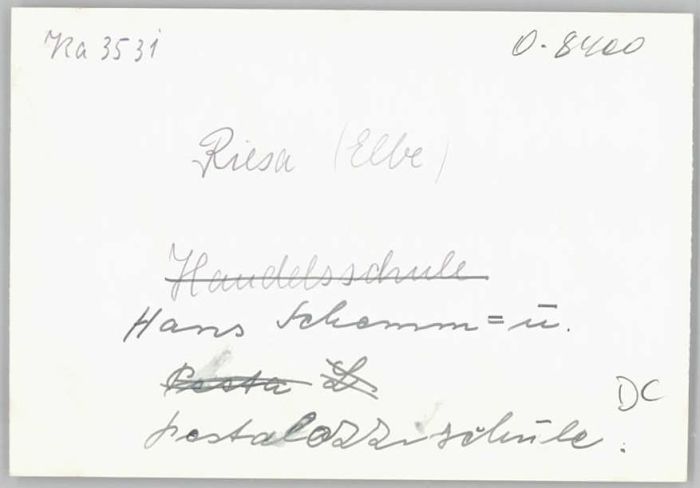 Ka 3531
O-8400
Riesa (Elbe)
Handelsschule
Hans Schemm= u.
Pesta
Pestalozzischule.
DC